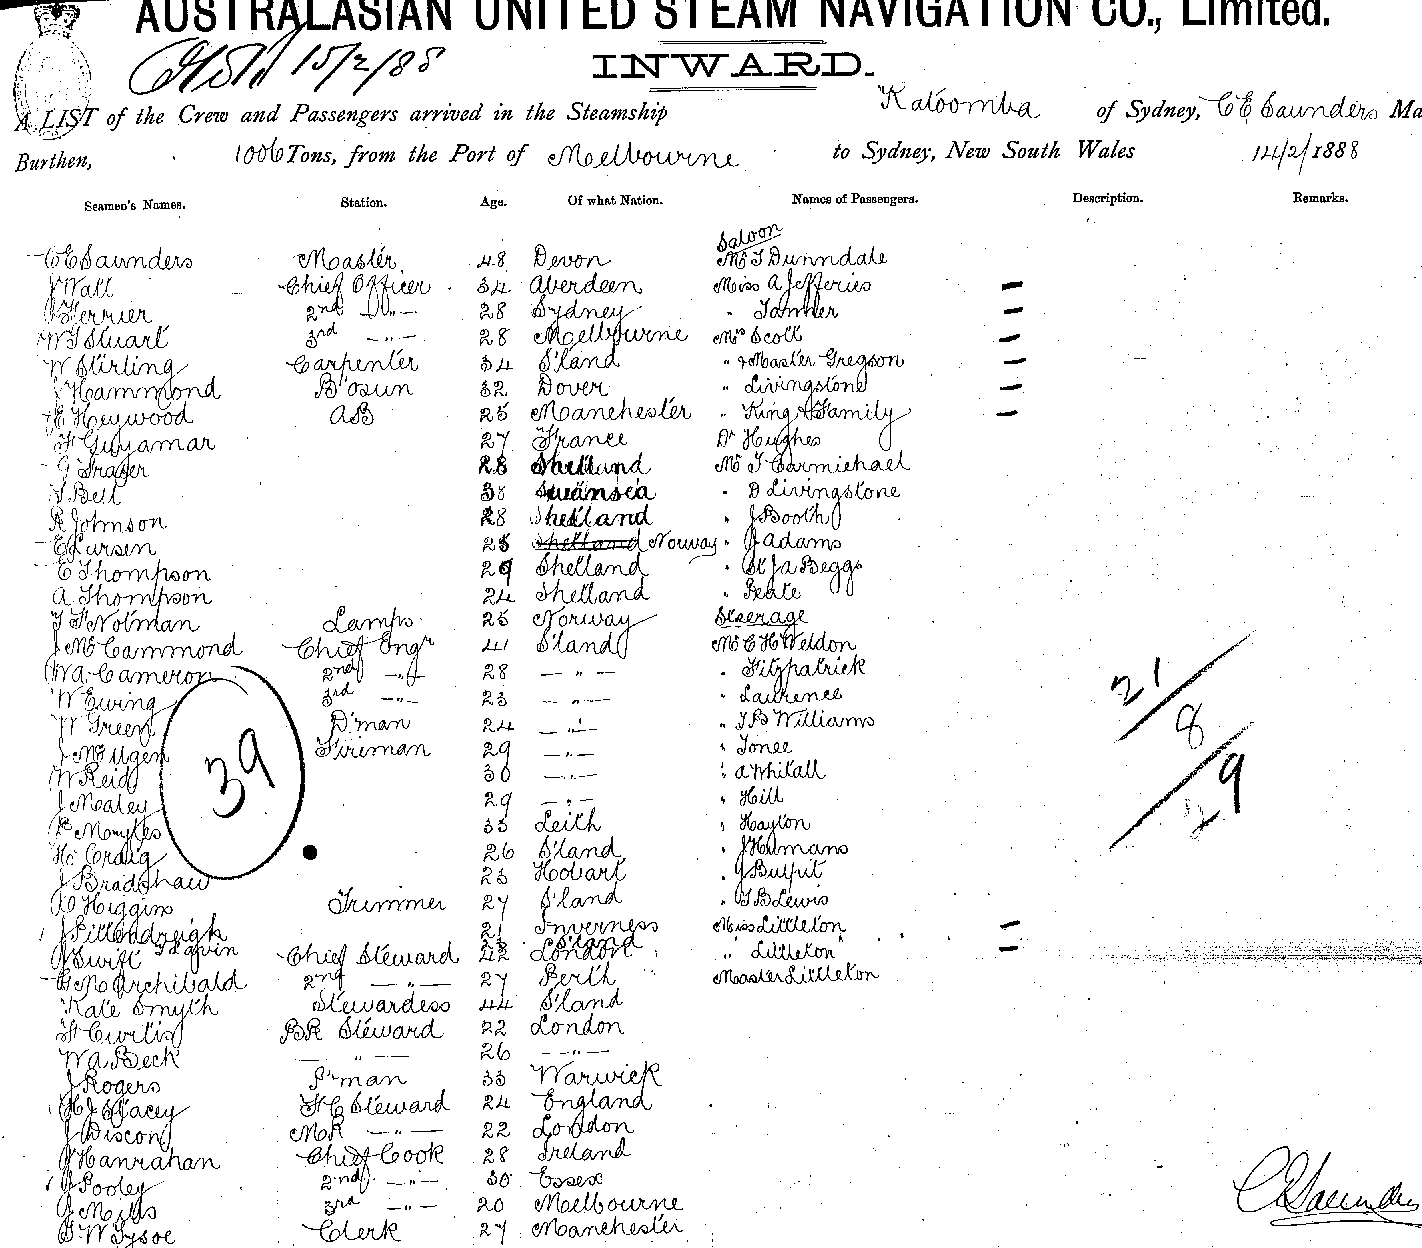 AUSTRALASIAN UNITED STEAM NAVIGATION CO., Limited.
15/2/88
INWARD.
A LIST of the Crew and Passengers arrived in the Steamship Katoomba of Sydney, C E Saunders Ma
Burthen, 1006 Tons, from the Port of Melbourne to Sydney, New South Wales 14/2/1888
Seamen's Names. Station. Age. Of what Nation. Names of Passengers. Description. Remarks.
Saloon
C E Saunders Master 48 Devon Mr T Dunndale
J Wall Chief Officer 34 Aberdeen Miss A Jefferies —
J Ferrier 2nd Do 28 Sydney " Tanner —
W T Stuart 3rd —"— 28 Melbourne Mrs Scott —
W Stirling Carpenter 34 S'land " & Master Gregson —
J Hammond B'osun 32 Dover " Livingstone —
E Heywood AB 25 Manchester " King & Family —
F Guyamar 27 France Dr Hughes
J Fraser 28 Shetland Mr T Carmichael
J Bell 38 Swansea " D Livingstone
R Johnson 28 Shetland " J Booth
E Larsen 25 Shetland Norway " J Adams
E Thompson 29 Shetland " St Ja Beggs
A Thompson 24 Shetland " Peate
T F Notman Lamps 25 Norway Steerage
J McCammond Chief Engr 41 S'land Mr C H Weldon
W A Cameron 2nd —"— 28 —"— " Fitzpatrick
W Ewing 3rd —"— 23 —"— " Laurence
W Green D'man 24 —"— " T B Williams
J McIlgen Fireman 29 —"— " Jones
W Reid 30 —"— " A Whitall
J Mealey 29 —"— " Hill
39
33 Leith " Hayton
Hy Craig 26 S'land " J Humans
J Bradshaw 23 Hobart " J Bulpit
O Higgins Trimmer 27 S'land " T B Lewis
21 Inverness Miss Littleton —
Lavin 23 S'land
J Swift Chief Steward 42 London " Littleton —
G M Archibald 2nd —"— 27 Perth Master Littleton
Kate Smyth Stewardess 44 S'land
F Curtis BR Steward 22 London
W A Beck —"— 26 —"—
J Rogers P'man 33 Warwick
H J Stacey F C Steward 24 England
J Discon MR —"— 22 London
J Hanrahan Chief Cook 28 Ireland
J Pooley 2nd —"— 30 Essex
J Mills 3rd —"— 20 Melbourne
G W Tysoe Clerk 27 Manchester
21
8
29
C E Saunders